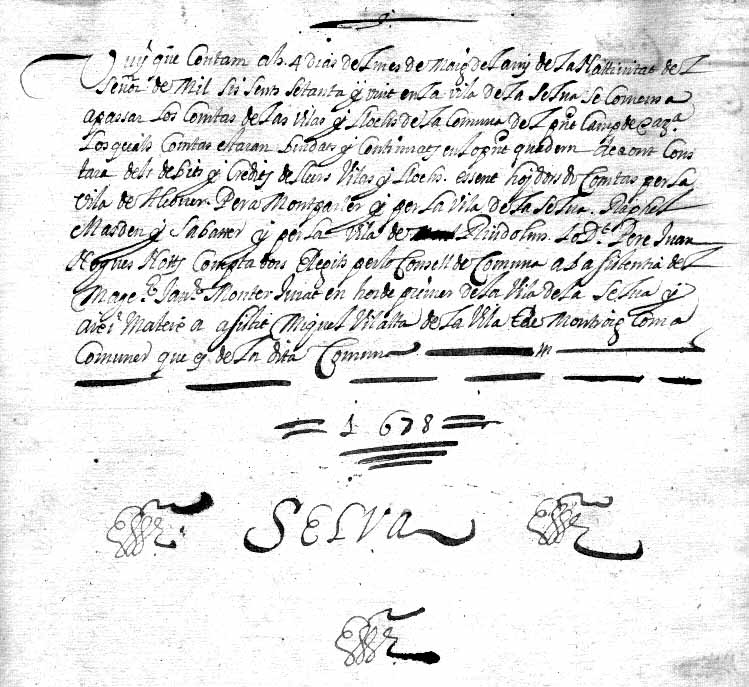 Vuÿ que Contam als 4 dias del mes de Maig del any de La Nattivitat del
Señor de Mil sis sents setanta y vuit en La vila de La Selva se Comensa
a passar Los Comtas de las Vilas y Llochs de La Comuna del pnt Camp de Targa
Los quals Comtas estaran Lindats y Continuats en Lo pnt quadern
tara dels debits y Credits de llurs Vilas y Llochs. essent hoydors de Comtas per La
Vila de Alcover Pera Montganer y per La Vila de La Selva Raphel
Masdeu y Sabatter y per La Vila de Riudoms Lo Dt Pere Juan
Nogues Nott Comptadors Elegits per Lo Consell de Comuna ab asistentia del
Mage Monter Jurat en horde primer de La Vila de La Selva y
Mateix a asistit Miquel Vilalta de La Vila de Montroig Com a
Comuner que es de La dita Comuna
1678
SELVA